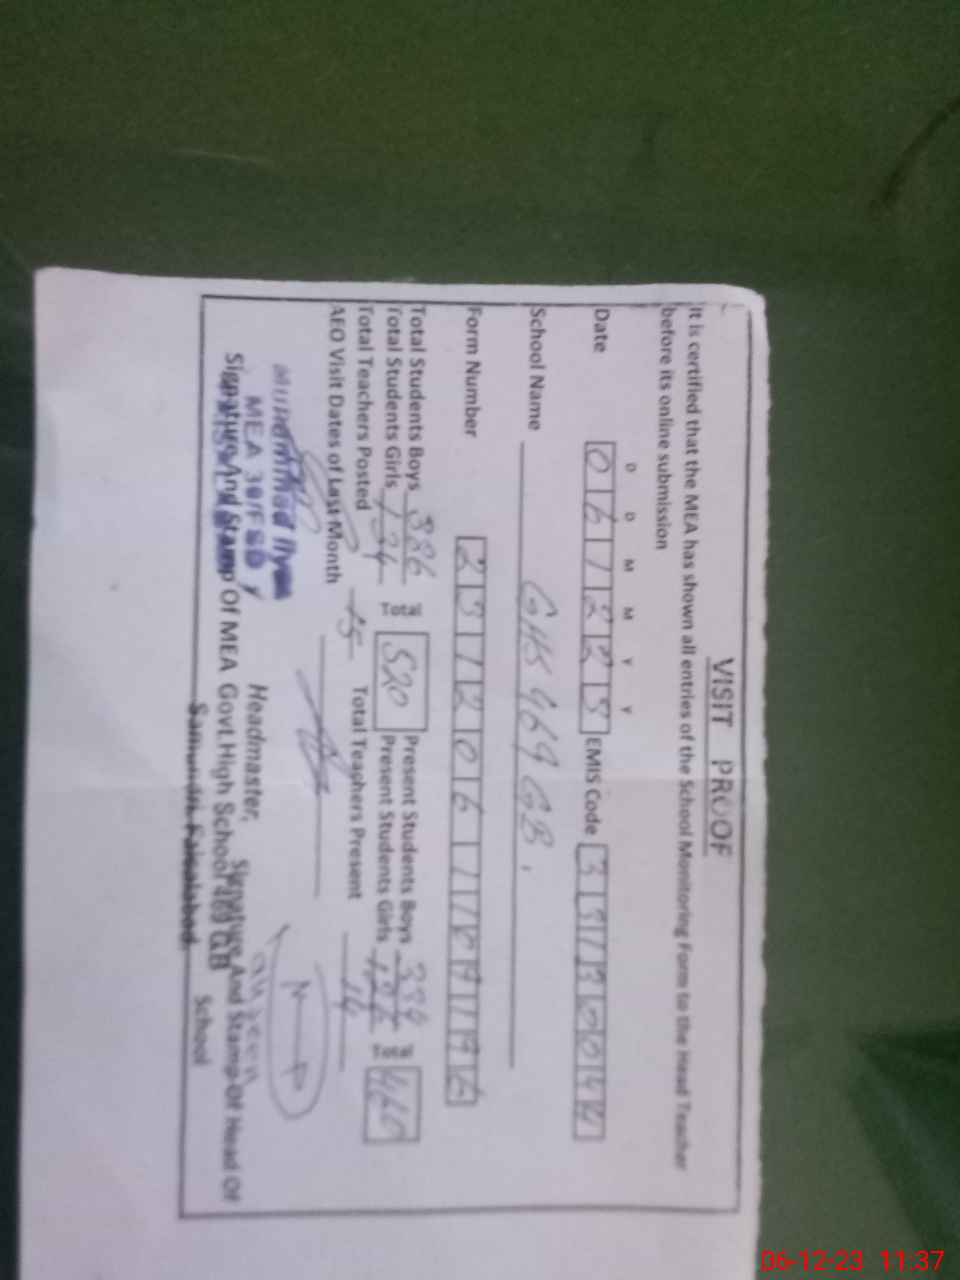 VISIT PROOF
It is certified that the MEA has shown all entries of the School Monitoring Form to the Head Teacher
before its online submission
D D M M Y Y
Date 0 6 1 2 2 3 EMIS Code 3 3 1 3 0 0 4 4
School Name GHS 469 GB.
Form Number
Total Students Boys 386 Total 520 Present Students Boys 334
Total Students Girls 134 Present Students Girls 126 460
Total Teachers Posted 15 Total Teachers Present 14
AEO Visit Dates of Last Month
N
Muhammad Ilyas
MEA 30/FSD
Headmaster,
Signature And Stamp Of MEA Govt.High School 469 GB
Signature And Stamp Of Head Of
School
Samundri, Faisalabad
06-12-23 11:37